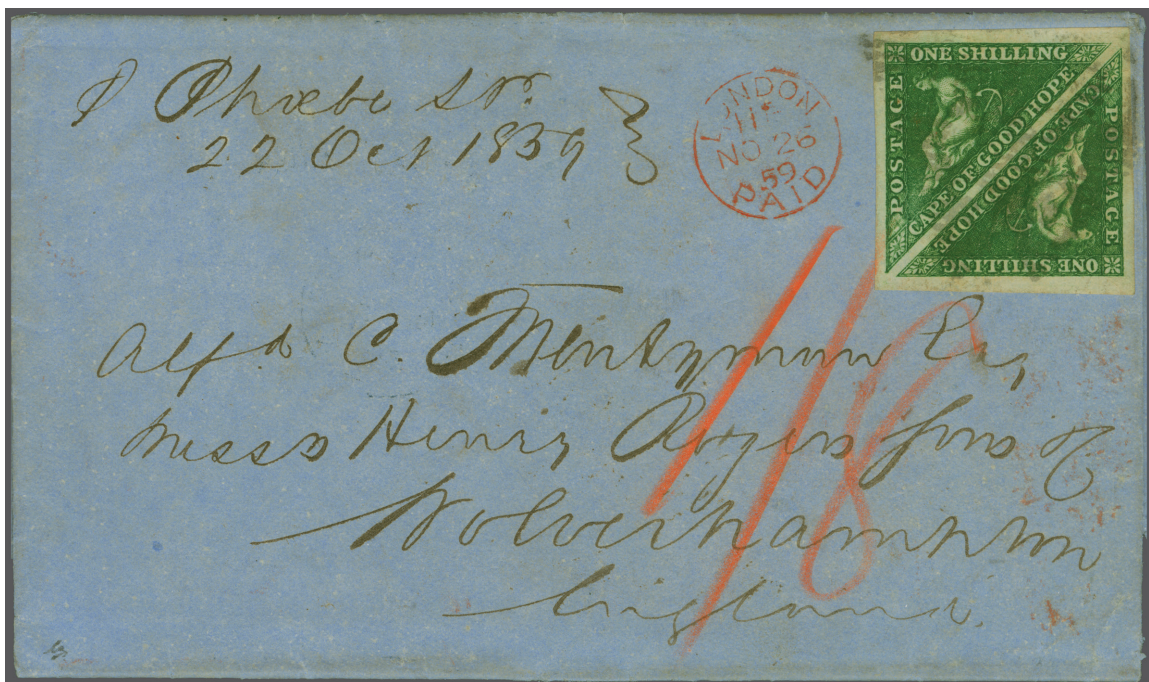 P Phoebe Str.
22 Oct 1859
LONDON
NO 26
59
PAID
ONE SHILLING
POSTAGE
CAPE OF GOOD HOPE
CAPE OF GOOD HOPE
POSTAGE
ONE SHILLING
1/8
Alfd C. Esq
Messrs Henry Rogers Sons &
Wolverhampton
England